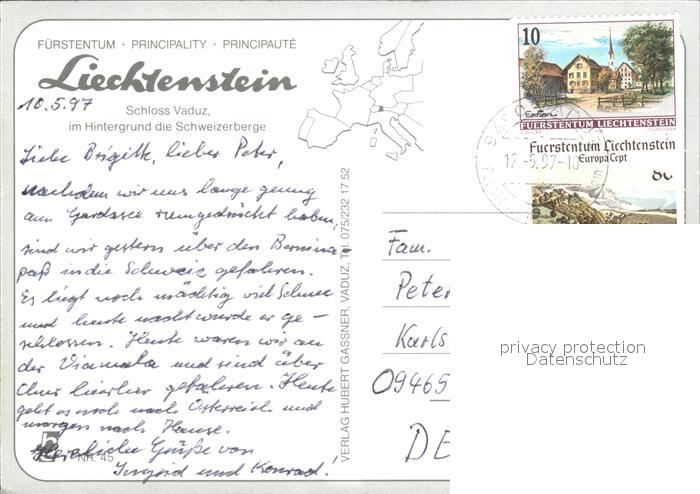 FÜRSTENTUM · PRINCIPALITY · PRINCIPAUTÉ
Liechtenstein
10.5.97
Schloss Vaduz,
im Hintergrund die Schweizerberge
Liebe Brigitte, lieber Peter,
nachdem wir uns lange genug
am Gardasee rumgedrückt haben,
sind wir gestern über den Bernina-
paß in die Schweiz gefahren.
Es liegt noch mächtig viel Schnee
und heute nacht wurde er ge-
schlossen. Heute waren wir an
der Viamala und sind über
Chur hierher gefahren. Heute
geht es noch nach Österreich und
morgen nach Hause.
Herzliche Grüße von
Ingrid und Konrad!
NR. 45
VERLAG HUBERT GASSNER, VADUZ, Tel. 075/232 17 52
10
Eschen
FÜRSTENTUM LIECHTENSTEIN
Fuerstentum Liechtenstein
Europa Cept
80
12.-5.97-10
Fam.
Peter
Karls
09465
DE
privacy protection
Datenschutz